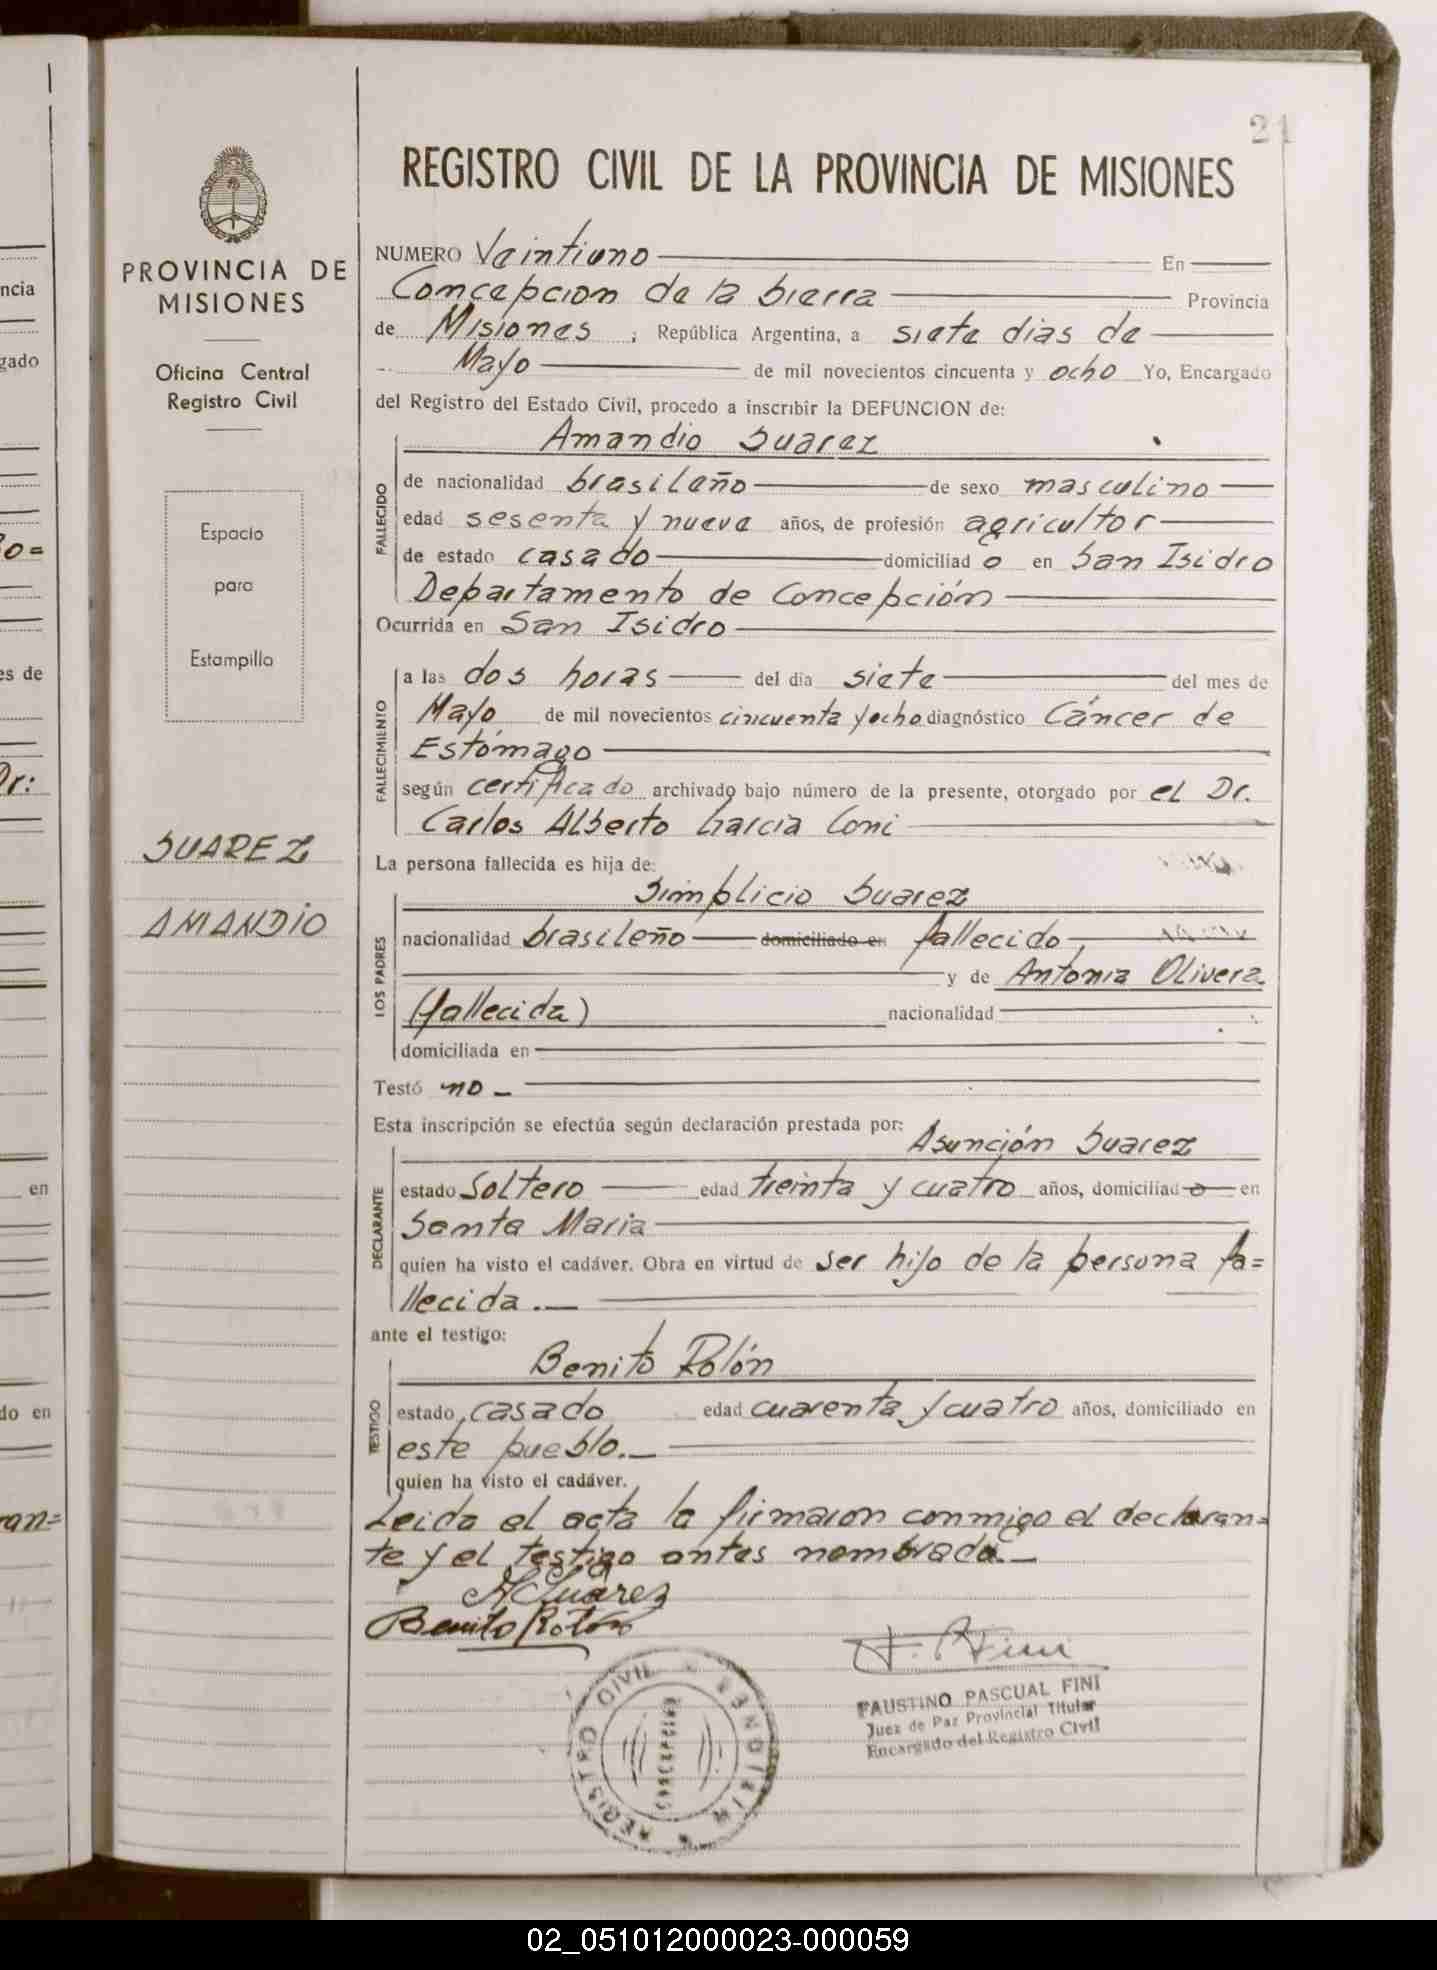 21
REGISTRO CIVIL DE LA PROVINCIA DE MISIONES
PROVINCIA DE
MISIONES
Oficina Central
Registro Civil
Espacio
para
Estampilla
SUAREZ
AMANDIO
NUMERO Veintiuno En
Concepcion de la Sierra Provincia
de Misiones, República Argentina, a siete dias de
Mayo de mil novecientos cincuenta y ocho Yo, Encargado
del Registro del Estado Civil, procedo a inscribir la DEFUNCION de:
Amandio Suarez
FALLECIDO
de nacionalidad brasileño de sexo masculino
edad sesenta y nueve años, de profesión agricultor
de estado casado domiciliad o en San Isidro
Departamento de Concepción
Ocurrida en San Isidro
FALLECIMIENTO
a las dos horas del día siete del mes de
Mayo de mil novecientos cincuenta y ocho diagnóstico Cáncer de
Estómago
según certificado archivado bajo número de la presente, otorgado por el Dr.
Carlos Alberto García Coni
La persona fallecida es hija de:
Simplicio Suarez
LOS PADRES
nacionalidad brasileño domiciliado en fallecido,
y de Antonia Olivera
(fallecida) nacionalidad
domiciliada en
Testó no
Esta inscripción se efectúa según declaración prestada por: Asunción Suarez
DECLARANTE
estado Soltero edad treinta y cuatro años, domiciliad o en
Santa Maria
quien ha visto el cadáver. Obra en virtud de ser hijo de la persona fa=
llecida.
ante el testigo:
Benito Rolón
TESTIGO
estado casado edad cuarenta y cuatro años, domiciliado en
este pueblo.
quien ha visto el cadáver.
Leida el acta la firmaron conmigo el declaran=
te y el testigo antes nombrado.
A Suarez
Benito Rolón
F. Fini
FAUSTINO PASCUAL FINI
Juez de Paz Provincial Titular
Encargado del Registro Civil
REGISTRO CIVIL
CONCEPCION
MISIONES
ncia
gado
es de
Dr:
en
do en
ran=
02_051012000023-000059